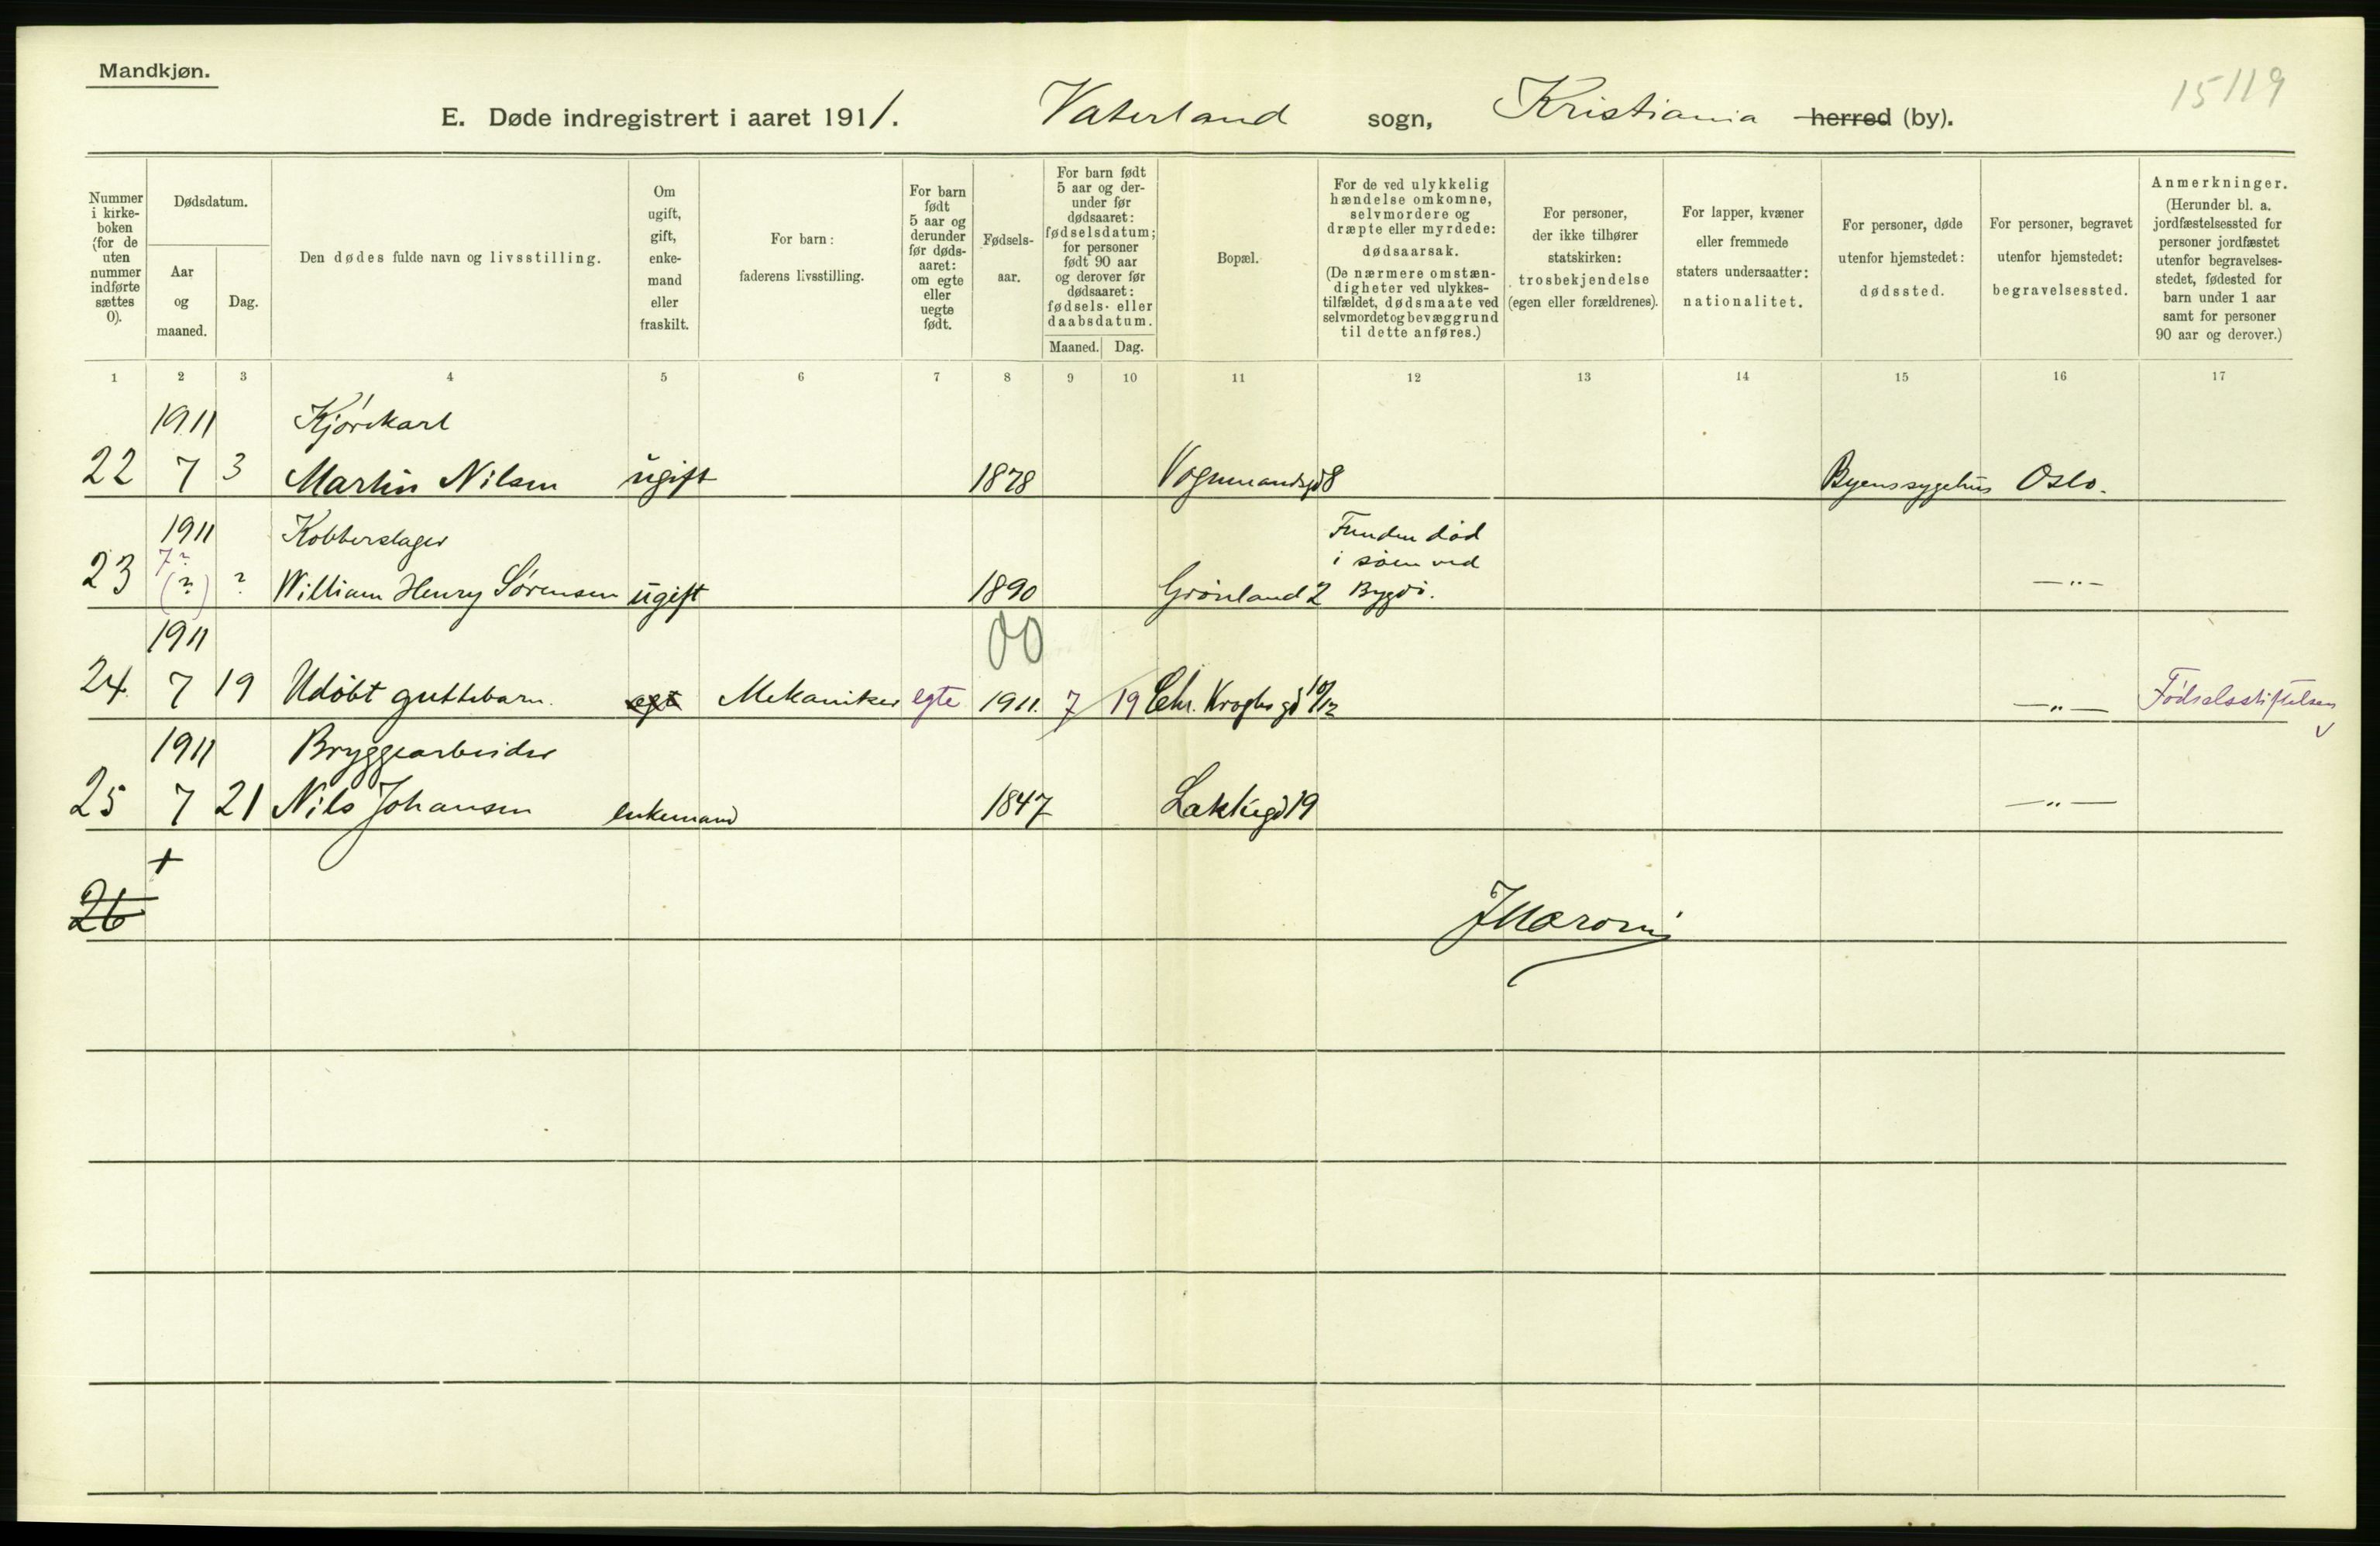 Mandkjøn.
15119
E. Døde indregistrert i aaret 1911. Vaterland sogn, Kristiania herred (by).
Nummer i kirke- boken (for de uten nummer indførte sættes 0).
Dødsdatum.
Aar og maaned.
Dag.
Den dødes fulde navn og livsstilling.
Om ugift, gift, enke- mand eller fraskilt.
For barn: faderens livsstilling.
For barn født 5 aar og derunder før døds- aaret: om egte eller uegte født.
Fødsels- aar.
For barn født 5 aar og der- under før dødsaaret: fødselsdatum; for personer født 90 aar og derover før dødsaaret: fødsels- eller daabsdatum.
Maaned. Dag.
Bopæl.
For de ved ulykkelig hændelse omkomne, selvmordere og dræpte eller myrdede: dødsaarsak. (De nærmere omstæn- digheter ved ulykkes- tilfældet, dødsmaate ved selvmordet og bevæggrund til dette anføres.)
For personer, der ikke tilhører statskirken: trosbekjendelse (egen eller forældrenes).
For lapper, kvæner eller fremmede staters undersaatter: nationalitet.
For personer, døde utenfor hjemstedet: dødssted.
For personer, begravet utenfor hjemstedet: begravelsessted.
Anmerkninger. (Herunder bl. a. jordfæstelsessted for personer jordfæstet utenfor begravelses- stedet, fødested for barn under 1 aar samt for personer 90 aar og derover.)
1 2 3 4 5 6 7 8 9 10 11 12 13 14 15 16 17
1911 Kjørekarl
22 7 3 Martin Nilsen ugift 1878 Vognmandsgd 8 Byens sygehus Oslo.
1911 Kobberslager Funden død
7? i søen ved
23 (?) ? William Henry Sørensen ugift 1890 Grønland 2 Bygdö. —"—
1911 00
24. 7 19 Udøbt guttebarn. egt Mekaniker egte 1911. 7 19 Chr. Kroghs gd 10/12 —"— Fødselsstiftelsen
1911 Bryggearbeider
25 7 21 Nils Johansen enkemand 1847 Lakkegd 19 —"—
+
26